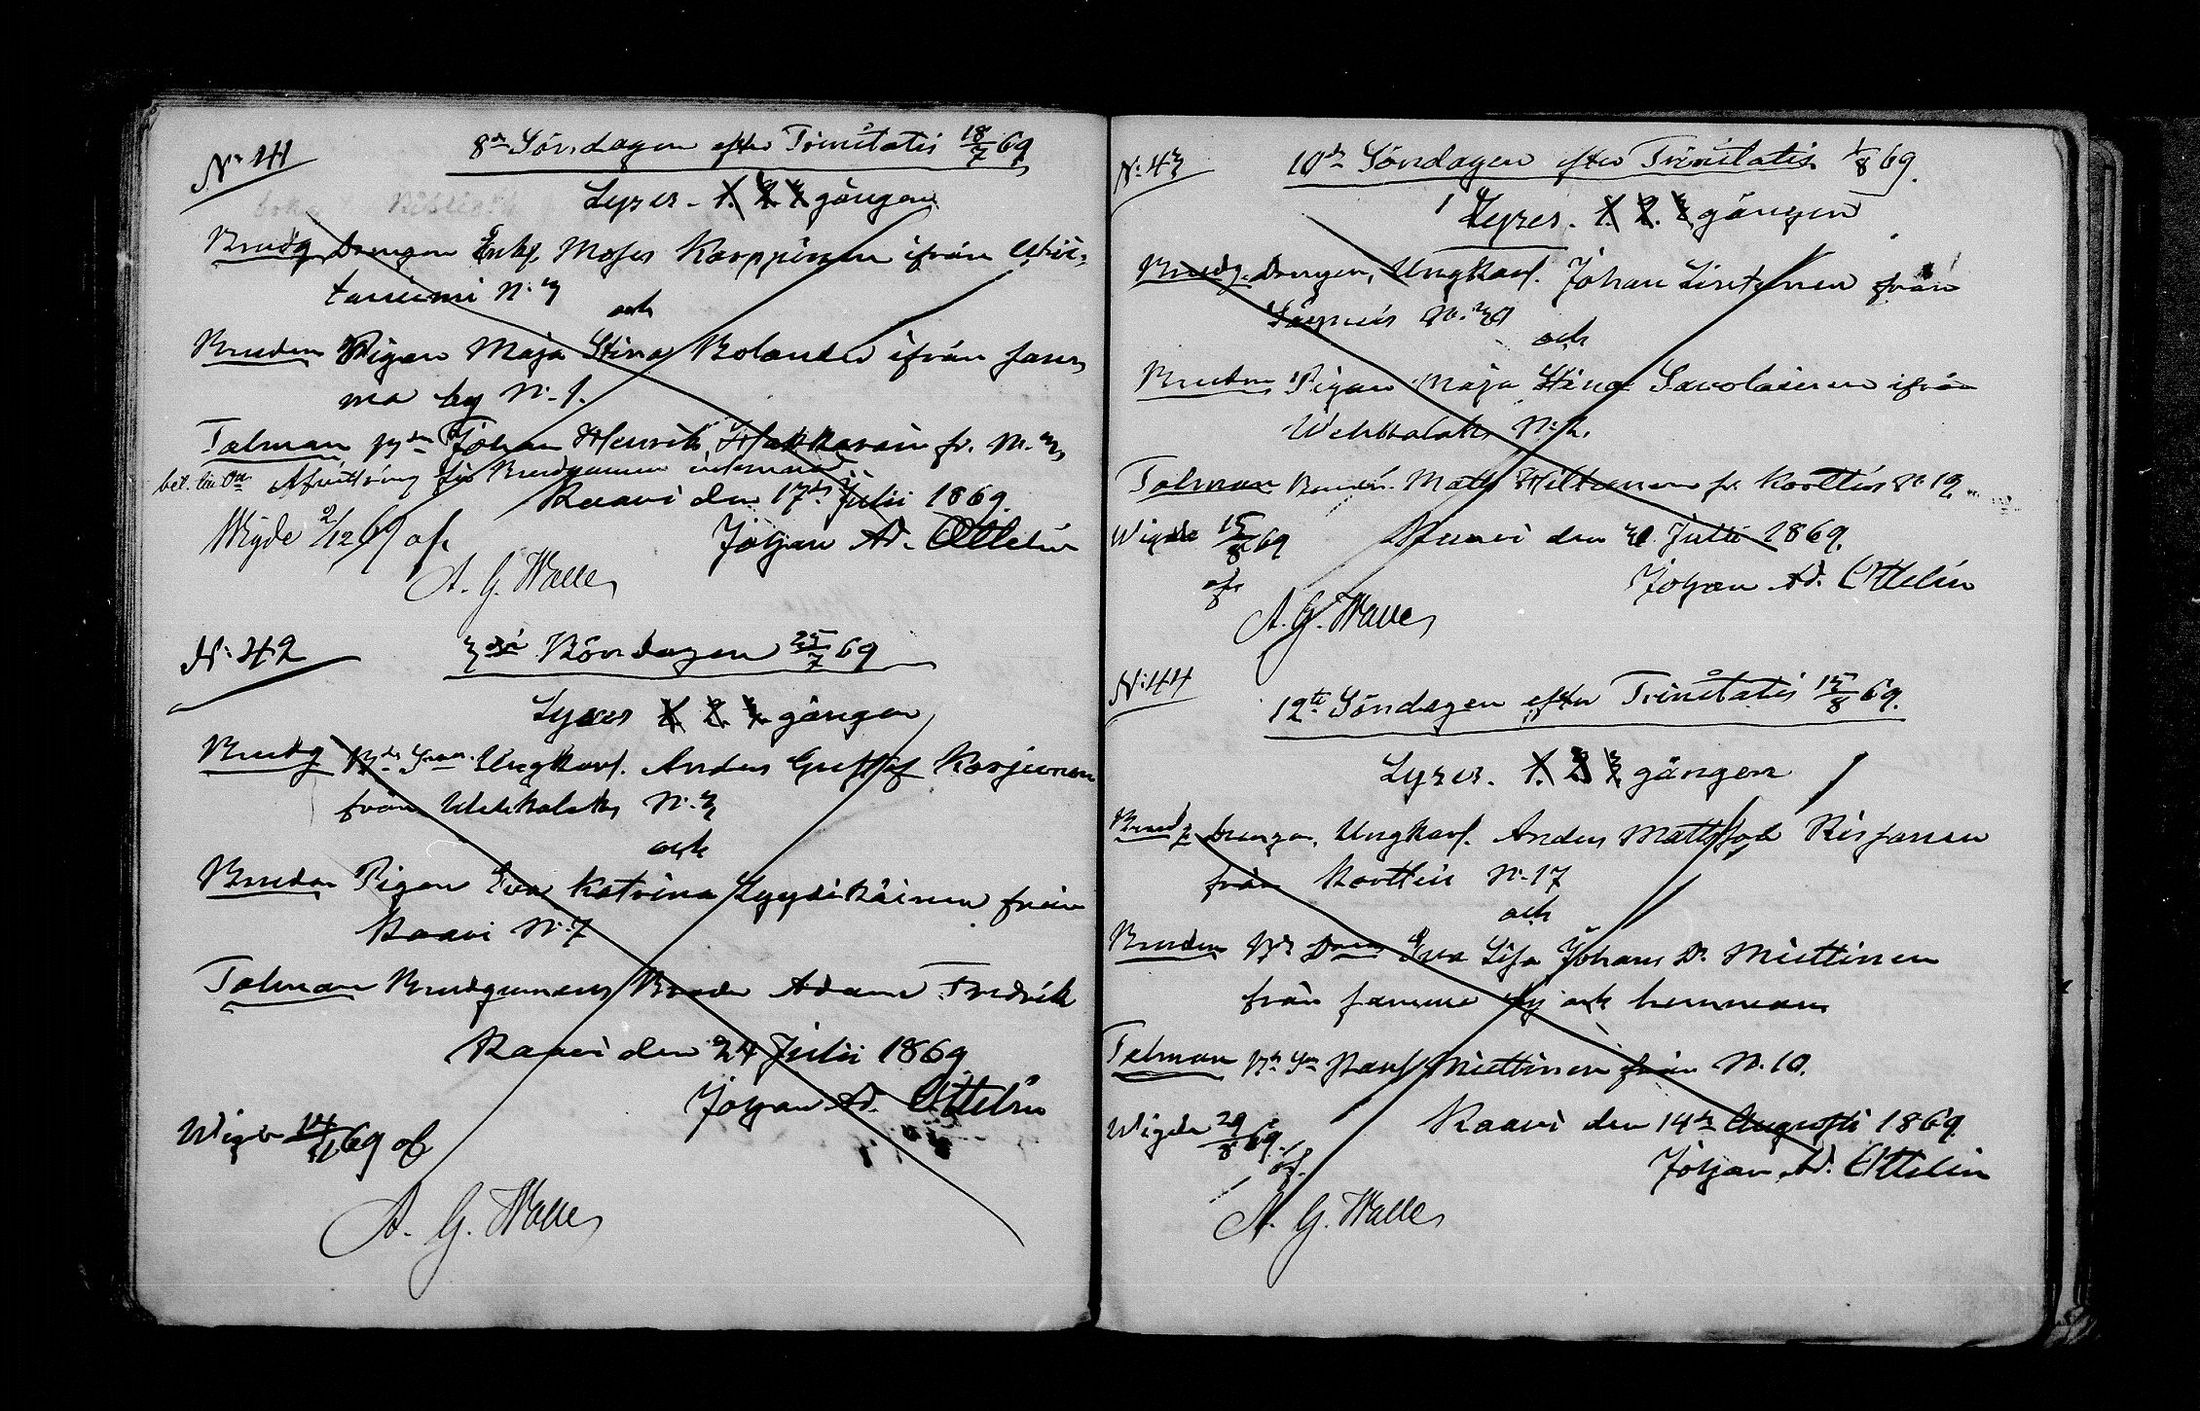 N: 41
8de Söndagen efter Trinitatis 18/7 69
Lyses - 1. 2. 3 gången
Brudg. Drengen Enkl. Moses Karppinen ifrån
taniemi N: 3
och
Bruden Pigan Maja Stina Bolander ifrån samma
ma by N: 1.
Talman Johan Henrik Hakkarain fr. N. 3
Afvittring för Brudgummen inlemnad
Raavi den 17de Julii 1869
Wigde 2/12 69 af
Johan Ad. Ottelin
A. G. Walle
N: 42
3dje Böndagen 25/7 69
Lyses 1. 2. 3. gången
Brudg Bd Son. Ungkarl. Anders Gustaf Korjunen
från Wehkalaks N: 3
och
Bruden Pigan Eva Katrina Lyydikäinen från
Raavi N: 7
Talman Brudgumens Broder Adam Fredrik
Raavi den 24 Julii 1869
Johan Ad. Ottelin
Wigde 14/11 69 af
A. G. Walle
N: 43
10de Söndagen efter Trinitatis 1/8 69.
Lyses. 1. 2. 3 gången
Brudg. Drengen, Ungkarl. Johan Lintunen från
och
Bruden Pigan Maja Stina Savolainen ifrån
Wehkalaks N: 2.
Talman Bond. Matts Hiltunen fr Korttis N: 19
Wigde 15/8 69
Raavi den 31 Julii 1869.
af
Johan Ad. Ottelin
A. G. Walle
N: 44
12te Söndagen efter Trinitatis 15/8 69.
Lyses. 1. 2 3 gången
Brudg Drengen, Ungkarl. Anders Mattsson Rissanen
från Korttis N: 17
och
Bruden Bd Dotter Eva Lisa Johans D. Miettinen
från samma by och hemman
Talman Bd Son Paul Miettinen från N. 10.
Raavi den 14de Augusti 1869
Wigde 29/8 69.
af.
Johan Ad. Ottelin
A. G. Walle